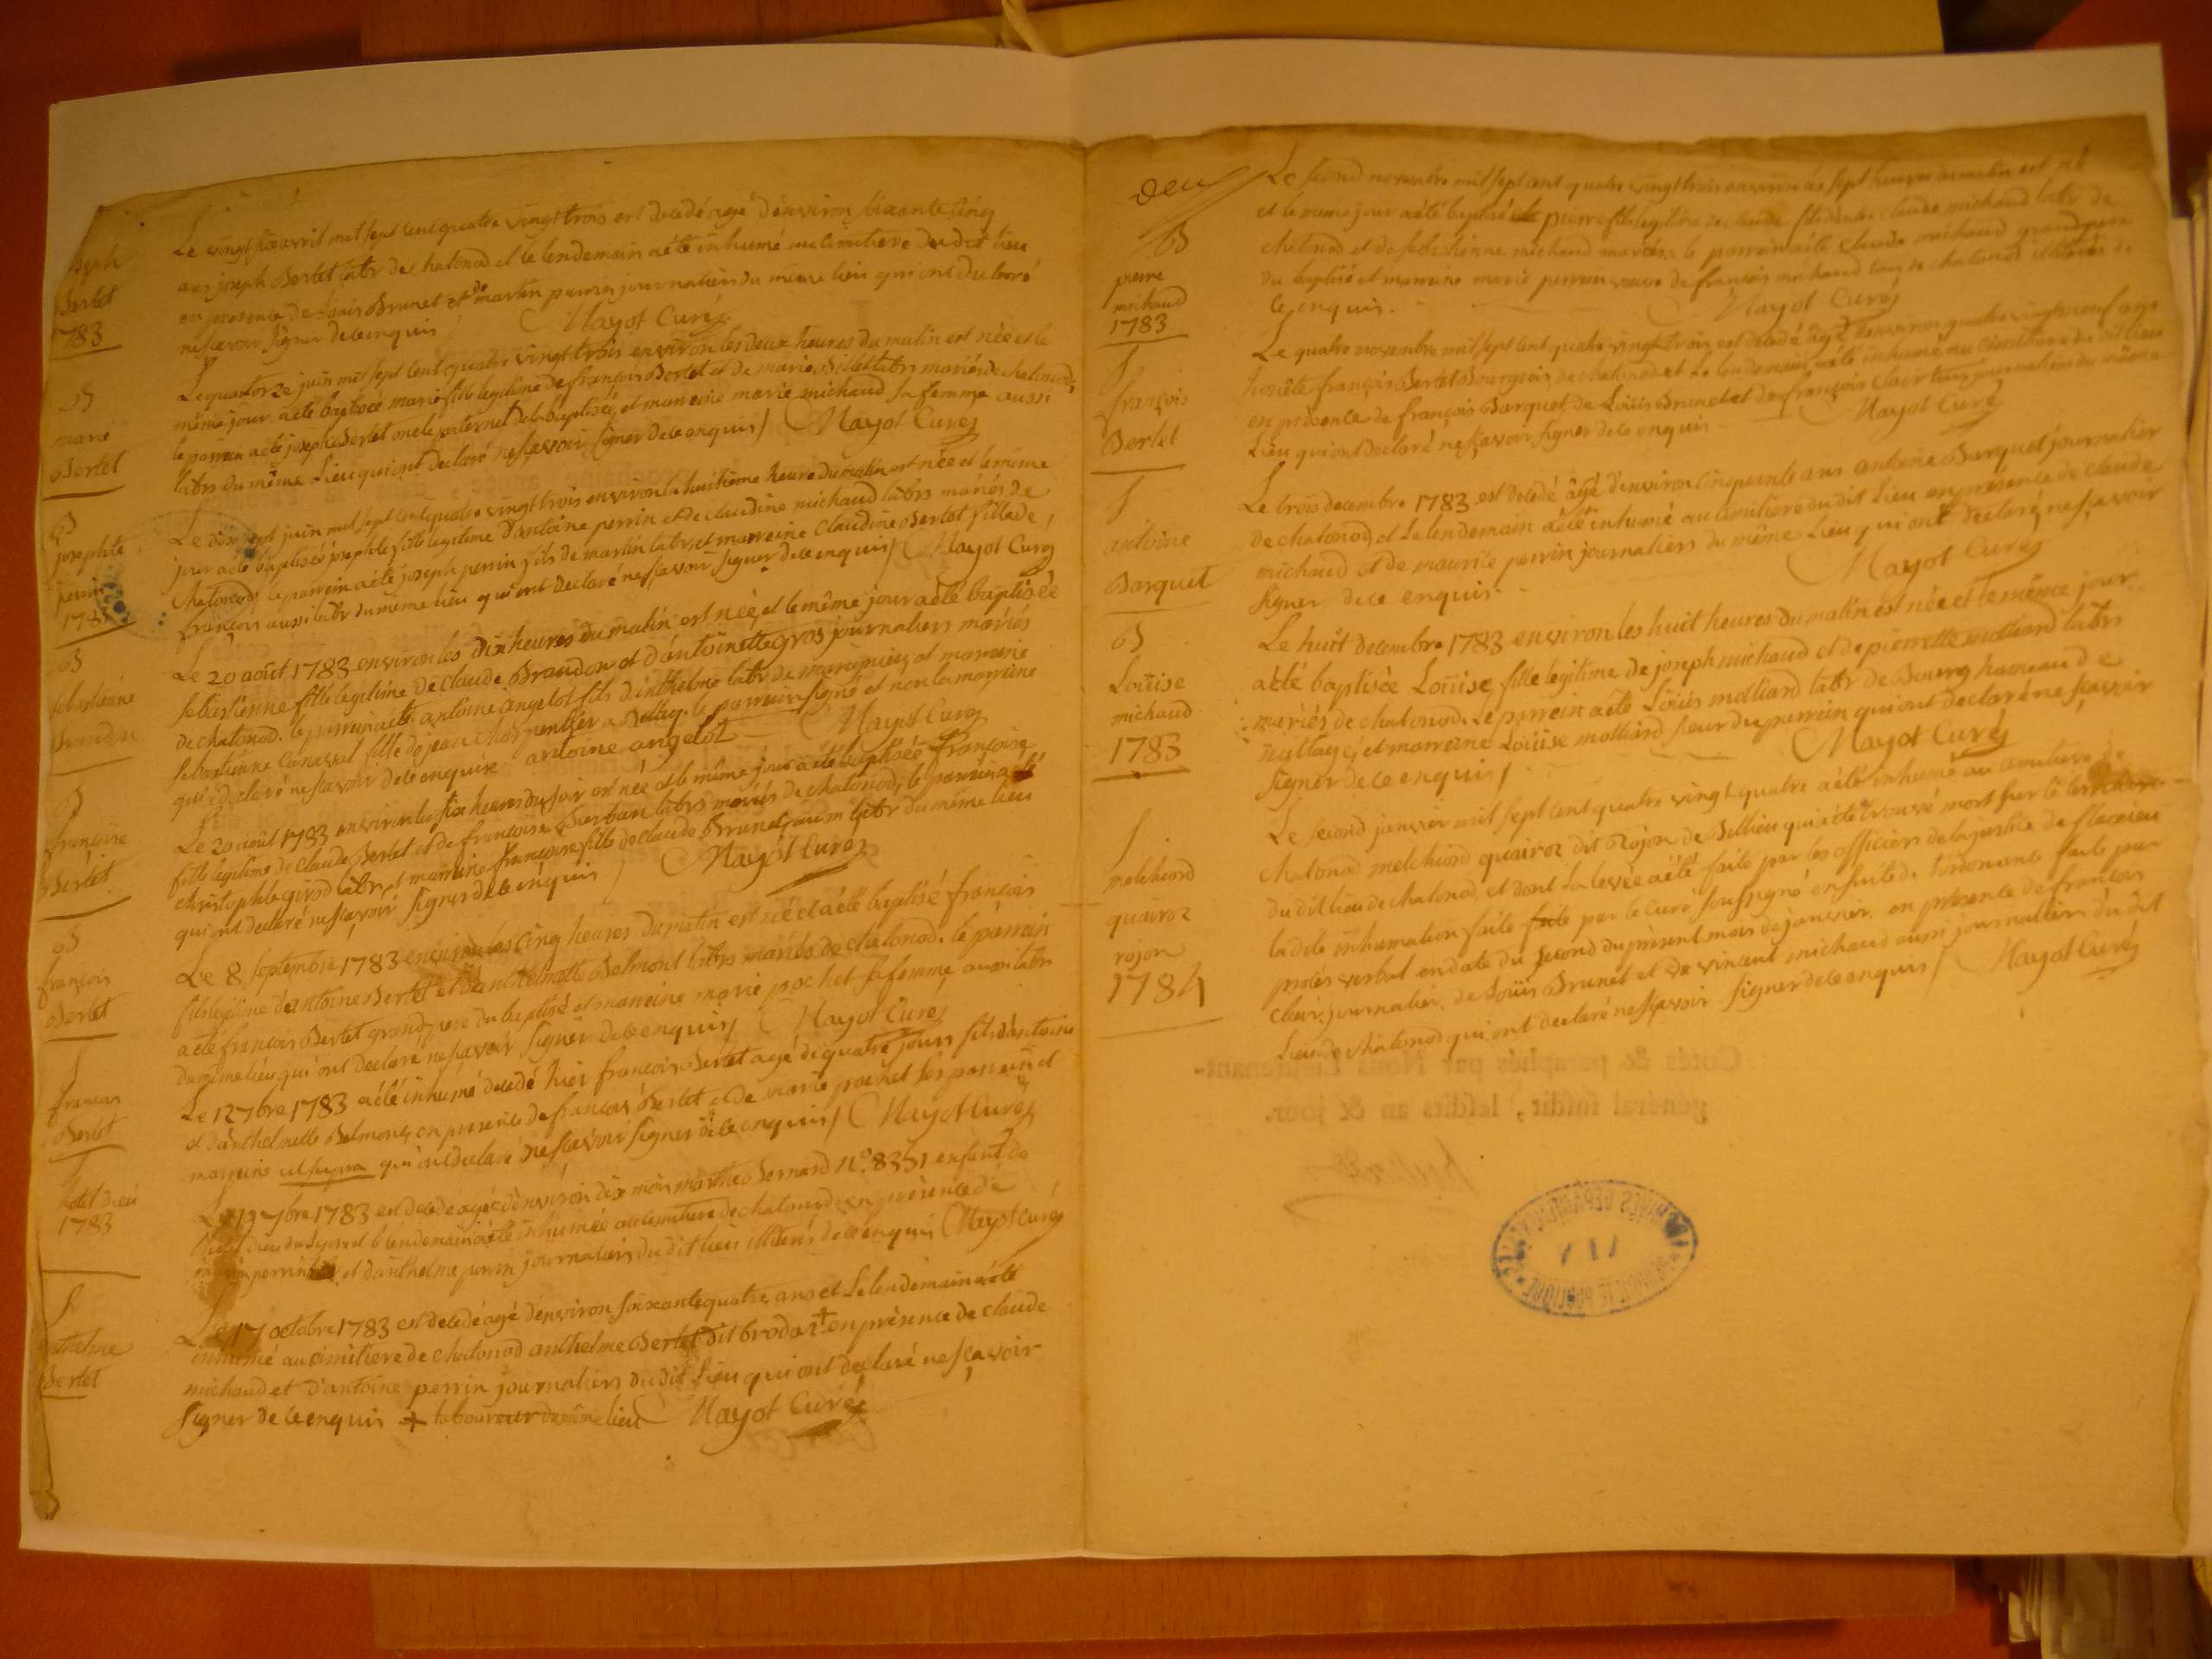 Joseph
Bertet
1783
Le vingt six avril mil sept cent quatre vingt trois est decedé agé d'environ soixante cinq
ans joseph Bertet labr de chatonod et le lendemain a été inhumé au cimitiere du dit lieu
en presence de Louis Brunet et de martin perrin journaliers du même lieu qui ont declaré
ne sçavoir signer de ce enquis / Mayot Curé
B
marie
Bertet
Le quatorze juin mil sept cent quatre vingt trois environ les deux heures du matin est née et le
même jour a été baptisée marie fille legitime de françois Bertet et de marie Billet labrs mariés de chatonod,
le parrein a été joseph Bertet oncle paternel de la baptisée, et marreine marie michaud sa femme aussi
labrs du même Lieu qui ont declaré ne sçavoir signer de ce enquis / Mayot Curé
B
josephte
perrin
178
Le dix sept juin mil sept cent quatre vingt trois environ la huitième heure du matin est née et le même
jour a été baptisée josephte fille legitime d'antoine perrin et de claudine michaud labrs mariés de
chatonod, le parrein a été joseph perrin fils de martin labr, et marreine claudine Bertet fille de
françois aussi labr du même lieu qui ont declaré ne sçavoir signer de ce enquis / Mayot Curé
B
sebastienne
Brandon
Le 20 août 1783 environ les dix heures du matin est née, et le même jour a été baptisée
sebastienne fille legitime de claude Brandon et d'antoinette gros journaliers mariés
de chatonod. le parrein a été antoine angelot fils d'anthelme labr de marignieu, et marreine
sebastienne fille de jean charpentier a Belley. le parrein signé et non la marreine
qui a declaré ne sçavoir de ce enquise antoine angelot Mayot Curé
B
françoise
Bertet
Le 20 août 1783 environ les six heures du soir est née et le même jour a été baptisée françoise
fille legitime de claude Bertet et de françoise Barban labrs mariés de chatonod, le parrein a été
christophle girod labr, et marreine françoise fille de claude Brunet, aussi labr du même lieu
qui ont declaré ne sçavoir signer de ce enquis / Mayot Curé
B
françois
Bertet
Le 8 septembre 1783 environ les cinq heures du matin est né et a été baptisé françois
fils legitime d'antoine Bertet et d'anthelmette Belmont labrs mariés de chatonod. le parrein
a été françois Bertet grand pere du baptisé et marreine marie pochet sa femme, aussi labrs
du même lieu qui ont declaré ne sçavoir signer de ce enquis / Mayot Curé
S
françois
Bertet
Le 12 7bre 1783 a été inhumé decedé hier françois Bertet agé de quatre jours fils d'antoine
et d'anthelmette Belmont, en presence de françois Bertet et de marie pochet ses parrein et
marreine ut supra qui ont declaré ne sçavoir signer de ce enquis / Mayot Curé
S
hotel dieu
1783
Le 13 7bre 1783 est decedé agée d'environ dix mois marthe Bernard No. 8351 enfant de
l'hotel dieu de Lyon et le lendemain a été inhumée au cimitiere de chatonod en presence de
perrin et d'anthelme perrin journaliers du dit lieu illiterés de ce enquis Mayot curé
S
anthelme
Bertet
Le 17 octobre 1783 est decedé agé d'environ soixante quatre ans et Le lendemain a été
inhumé au cimitiere de chatonod anthelme Bertet dit brodaz + en présence de claude
michaud et d'antoine perrin journaliers du dit Lieu qui ont declaré ne sçavoir
signer de ce enquis + laboureur du même lieu Mayot Curé
deux
B
pierre
michaud
1783
Le second novembre mil sept cent quatre vingt trois environ les sept heures du matin est né
et le meme jour a été baptisé pierre fils legitime de claude fils d'autre claude michaud labr de
chatonod et de sebastienne michaud mariés, le parrein a été claude michaud grand pere
du baptisé et marreine marie perrin veuve de françois michaud tous de chatonod illiterés de
ce enquis. Mayot Curé
S
françois
Bertet
Le quatre novembre mil sept cent quatre vingt trois est decedé agé d'environ quatre vingt neuf ans
honête françois Bertet Bourgeois de chatonod et Le lendemain a été inhumé au cimitiere du dit lieu
en présence de françois Barquet, de Loüis Brunet et de françois clair tous journaliers du même
Lieu qui ont declaré ne sçavoir signer de ce enquis Mayot Curé
S
antoine
Barquet
Le trois decembre 1783 est decedé âgé d'environ cinquante ans antoine Barquet journalier
de chatonod, et Le lendemain a été inhumé au cimitiere du dit Lieu en présence de claude
michaud et de maurice perrin journaliers du même Lieu qui ont declaré ne sçavoir
signer de ce enquis. Mayot Curé
B
Loüise
michaud
1783
Le huit decembre 1783 environ les huit heures du matin est née et le même jour
a été baptisée Loüise, fille légitime de joseph michaud et de pierrette molliard labrs
mariés de chatonod. Le parrein a été Loüis molliard labr de Bourg hameau de
et marreine Loüise molliard sœur du parrein qui ont declaré ne sçavoir
signer de ce enquis / Mayot Curé
S
melchiord
quairoz
rojon
1784
Le second janvier mil sept cent quatre vingt quatre a été inhumé au cimitiere de
chatonod melchiord quairoz dit Rojon de Billieu qui a été trouvé mort sur le
du dit lieu de chatonod, et dont la levée a été faite par les officiers de la justice de
la dite inhumation faite par le curé soussigné ensuite de l'ordonance faite par
procès verbal en date du second du présent mois de janvier, en présence de françois
clair, journalier, de Loüis Brunet et de vincent michaud aussi journaliers du dit
Lieu de chatonod qui ont declaré ne sçavoir signer de ce enquis / Mayot Curé
Cotés & paraphés par Nous Lieutenant-
général susdit, lesdits an & jour.